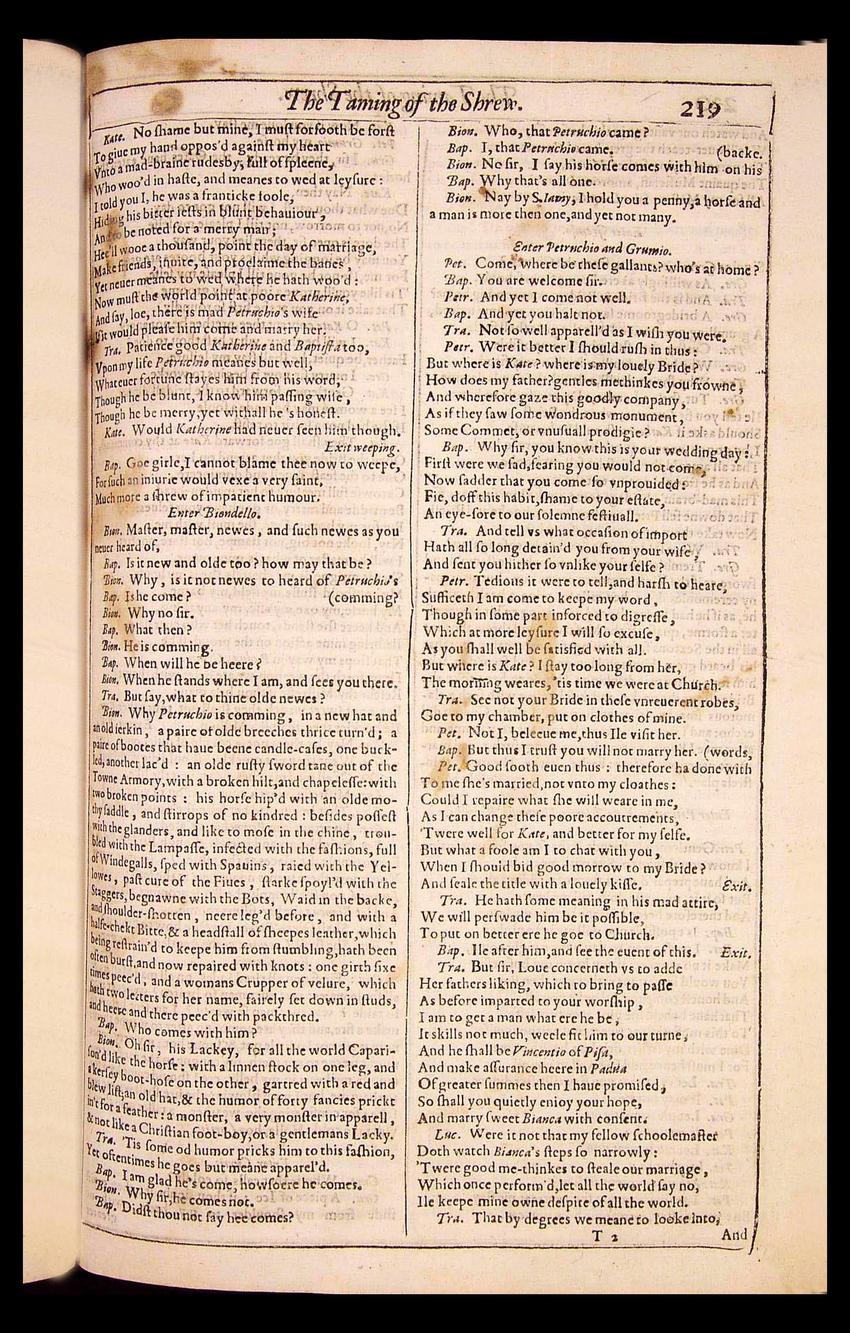 The Taming of the Shrew.
219
Kate. No shame but mine, I must forsooth be forst
To giue my hand oppos'd against my heart
Vnto a mad-braine rudesby, full of spleene,
Who woo'd in haste, and meanes to wed at leysure:
I told you I, he was a franticke foole,
Hiding his bitter iests in blunt behauiour,
And to be noted for a merry man;
Hee'll wooe a thousand, point the day of marriage,
Make friends, inuite, and proclaime the banes,
Yet neuer meanes to wed where he hath woo'd:
Now must the world point at poore Katherine,
And say, loe, there is mad Petruchio's wife
If it would please him come and marry her.
Tra. Patience good Katherine and Baptista too,
Vpon my life Petruchio meanes but well,
Whateuer fortune stayes him from his word,
Though he be blunt, I know him passing wise,
Though he be merry, yet withall he's honest.
Kate. Would Katherine had neuer seen him though.
Exit weeping.
Bap. Goe girle, I cannot blame thee now to weepe,
For such an iniurie would vexe a very saint,
Much more a shrew of impatient humour.
Enter Biondello.
Bion. Master, master, newes, and such newes as you
neuer heard of,
Bap. Is it new and olde too? how may that be?
Bion. Why, is it not newes to heard of Petruchio's
Bap. Is he come? (comming?
Bion. Why no sir.
Bap. What then?
Bion. He is comming.
Bap. When will he be heere?
Bion. When he stands where I am, and sees you there.
Tra. But say, what to thine olde newes?
Bion. Why Petruchio is comming, in a new hat and
an old ierkin, a paire of olde breeches thrice turn'd; a
paire of bootes that haue beene candle-cases, one buck-
led, another lac'd: an olde rusty sword tane out of the
Towne Armory, with a broken hilt, and chapelesse: with
two broken points: his horse hip'd with an olde mo-
thy saddle, and stirrops of no kindred: besides possest
with the glanders, and like to mose in the chine, trou-
bled with the Lampasse, infected with the fashions, full
of Windegalls, sped with Spauins, raied with the Yel-
lowes, past cure of the Fiues, starke spoyl'd with the
Staggers, begnawne with the Bots, Waid in the backe,
and shoulder-shotten, neere leg'd before, and with a
halfe-chekt Bitte, & a headstall of sheepes leather, which
being restrain'd to keepe him from stumbling, hath been
often burst, and now repaired with knots: one girth sixe
times peec'd, and a womans Crupper of velure, which
hath two letters for her name, fairely set down in studs,
and heere and there peec'd with packthred.
Bap. Who comes with him?
Bion. Oh sir, his Lackey, for all the world Capari-
son'd like the horse: with a linnen stock on one leg, and
a kersey boot-hose on the other, gartred with a red and
blew list; an old hat, & the humor of forty fancies prickt
in't for a feather: a monster, a very monster in apparell,
& not like a Christian foot-boy, or a gentlemans Lacky.
Tra. 'Tis some od humor pricks him to this fashion,
Yet oftentimes he goes but meane apparel'd.
Bap. I am glad he's come, howsoere he comes.
Bion. Why sir, he comes not.
Bap. Didst thou not say hee comes?
Bion. Who, that Petruchio came?
Bap. I, that Petruchio came. (backe.
Bion. No sir, I say his horse comes with him on his
Bap. Why that's all one.
Bion. Nay by S. Iamy, I hold you a penny, a horse and
a man is more then one, and yet not many.
Enter Petruchio and Grumio.
Pet. Come, where be these gallants? who's at home?
Bap. You are welcome sir.
Petr. And yet I come not well.
Bap. And yet you halt not.
Tra. Not so well apparell'd as I wish you were.
Petr. Were it better I should rush in thus:
But where is Kate? where is my louely Bride?
How does my father? gentles methinkes you frowne,
And wherefore gaze this goodly company,
As if they saw some wondrous monument,
Some Commet, or vnusuall prodigie?
Bap. Why sir, you know this is your wedding day:
First were we sad, fearing you would not come,
Now sadder that you come so vnprouided:
Fie, doff this habit, shame to your estate,
An eye-sore to our solemne festiuall.
Tra. And tell vs what occasion of import
Hath all so long detain'd you from your wife,
And sent you hither so vnlike your selfe?
Petr. Tedious it were to tell, and harsh to heare,
Sufficeth I am come to keepe my word,
Though in some part inforced to digresse,
Which at more leysure I will so excuse,
As you shall well be satisfied with all.
But where is Kate? I stay too long from her,
The morning weares, 'tis time we were at Church.
Tra. See not your Bride in these vnreuerent robes,
Goe to my chamber, put on clothes of mine.
Pet. Not I, beleeue me, thus Ile visit her.
Bap. But thus I trust you will not marry her. (words,
Pet. Good sooth euen thus: therefore ha done with
To me she's married, not vnto my cloathes:
Could I repaire what she will weare in me,
As I can change these poore accoutrements,
'Twere well for Kate, and better for my selfe.
But what a foole am I to chat with you,
When I should bid good morrow to my Bride?
And seale the title with a louely kisse. Exit.
Tra. He hath some meaning in his mad attire,
We will perswade him be it possible,
To put on better ere he goe to Church.
Bap. Ile after him, and see the euent of this. Exit.
Tra. But sir, Loue concerneth vs to adde
Her fathers liking, which to bring to passe
As before imparted to your worship,
I am to get a man what ere he be,
It skills not much, weele fit him to our turne,
And he shall be Vincentio of Pisa,
And make assurance heere in Padua
Of greater summes then I haue promised,
So shall you quietly enioy your hope,
And marry sweet Bianca with consent.
Luc. Were it not that my fellow schoolemaster
Doth watch Bianca's steps so narrowly:
'Twere good me-thinkes to steale our marriage,
Which once perform'd, let all the world say no,
Ile keepe mine owne despite of all the world.
Tra. That by degrees we meane to looke into,
T 2 And